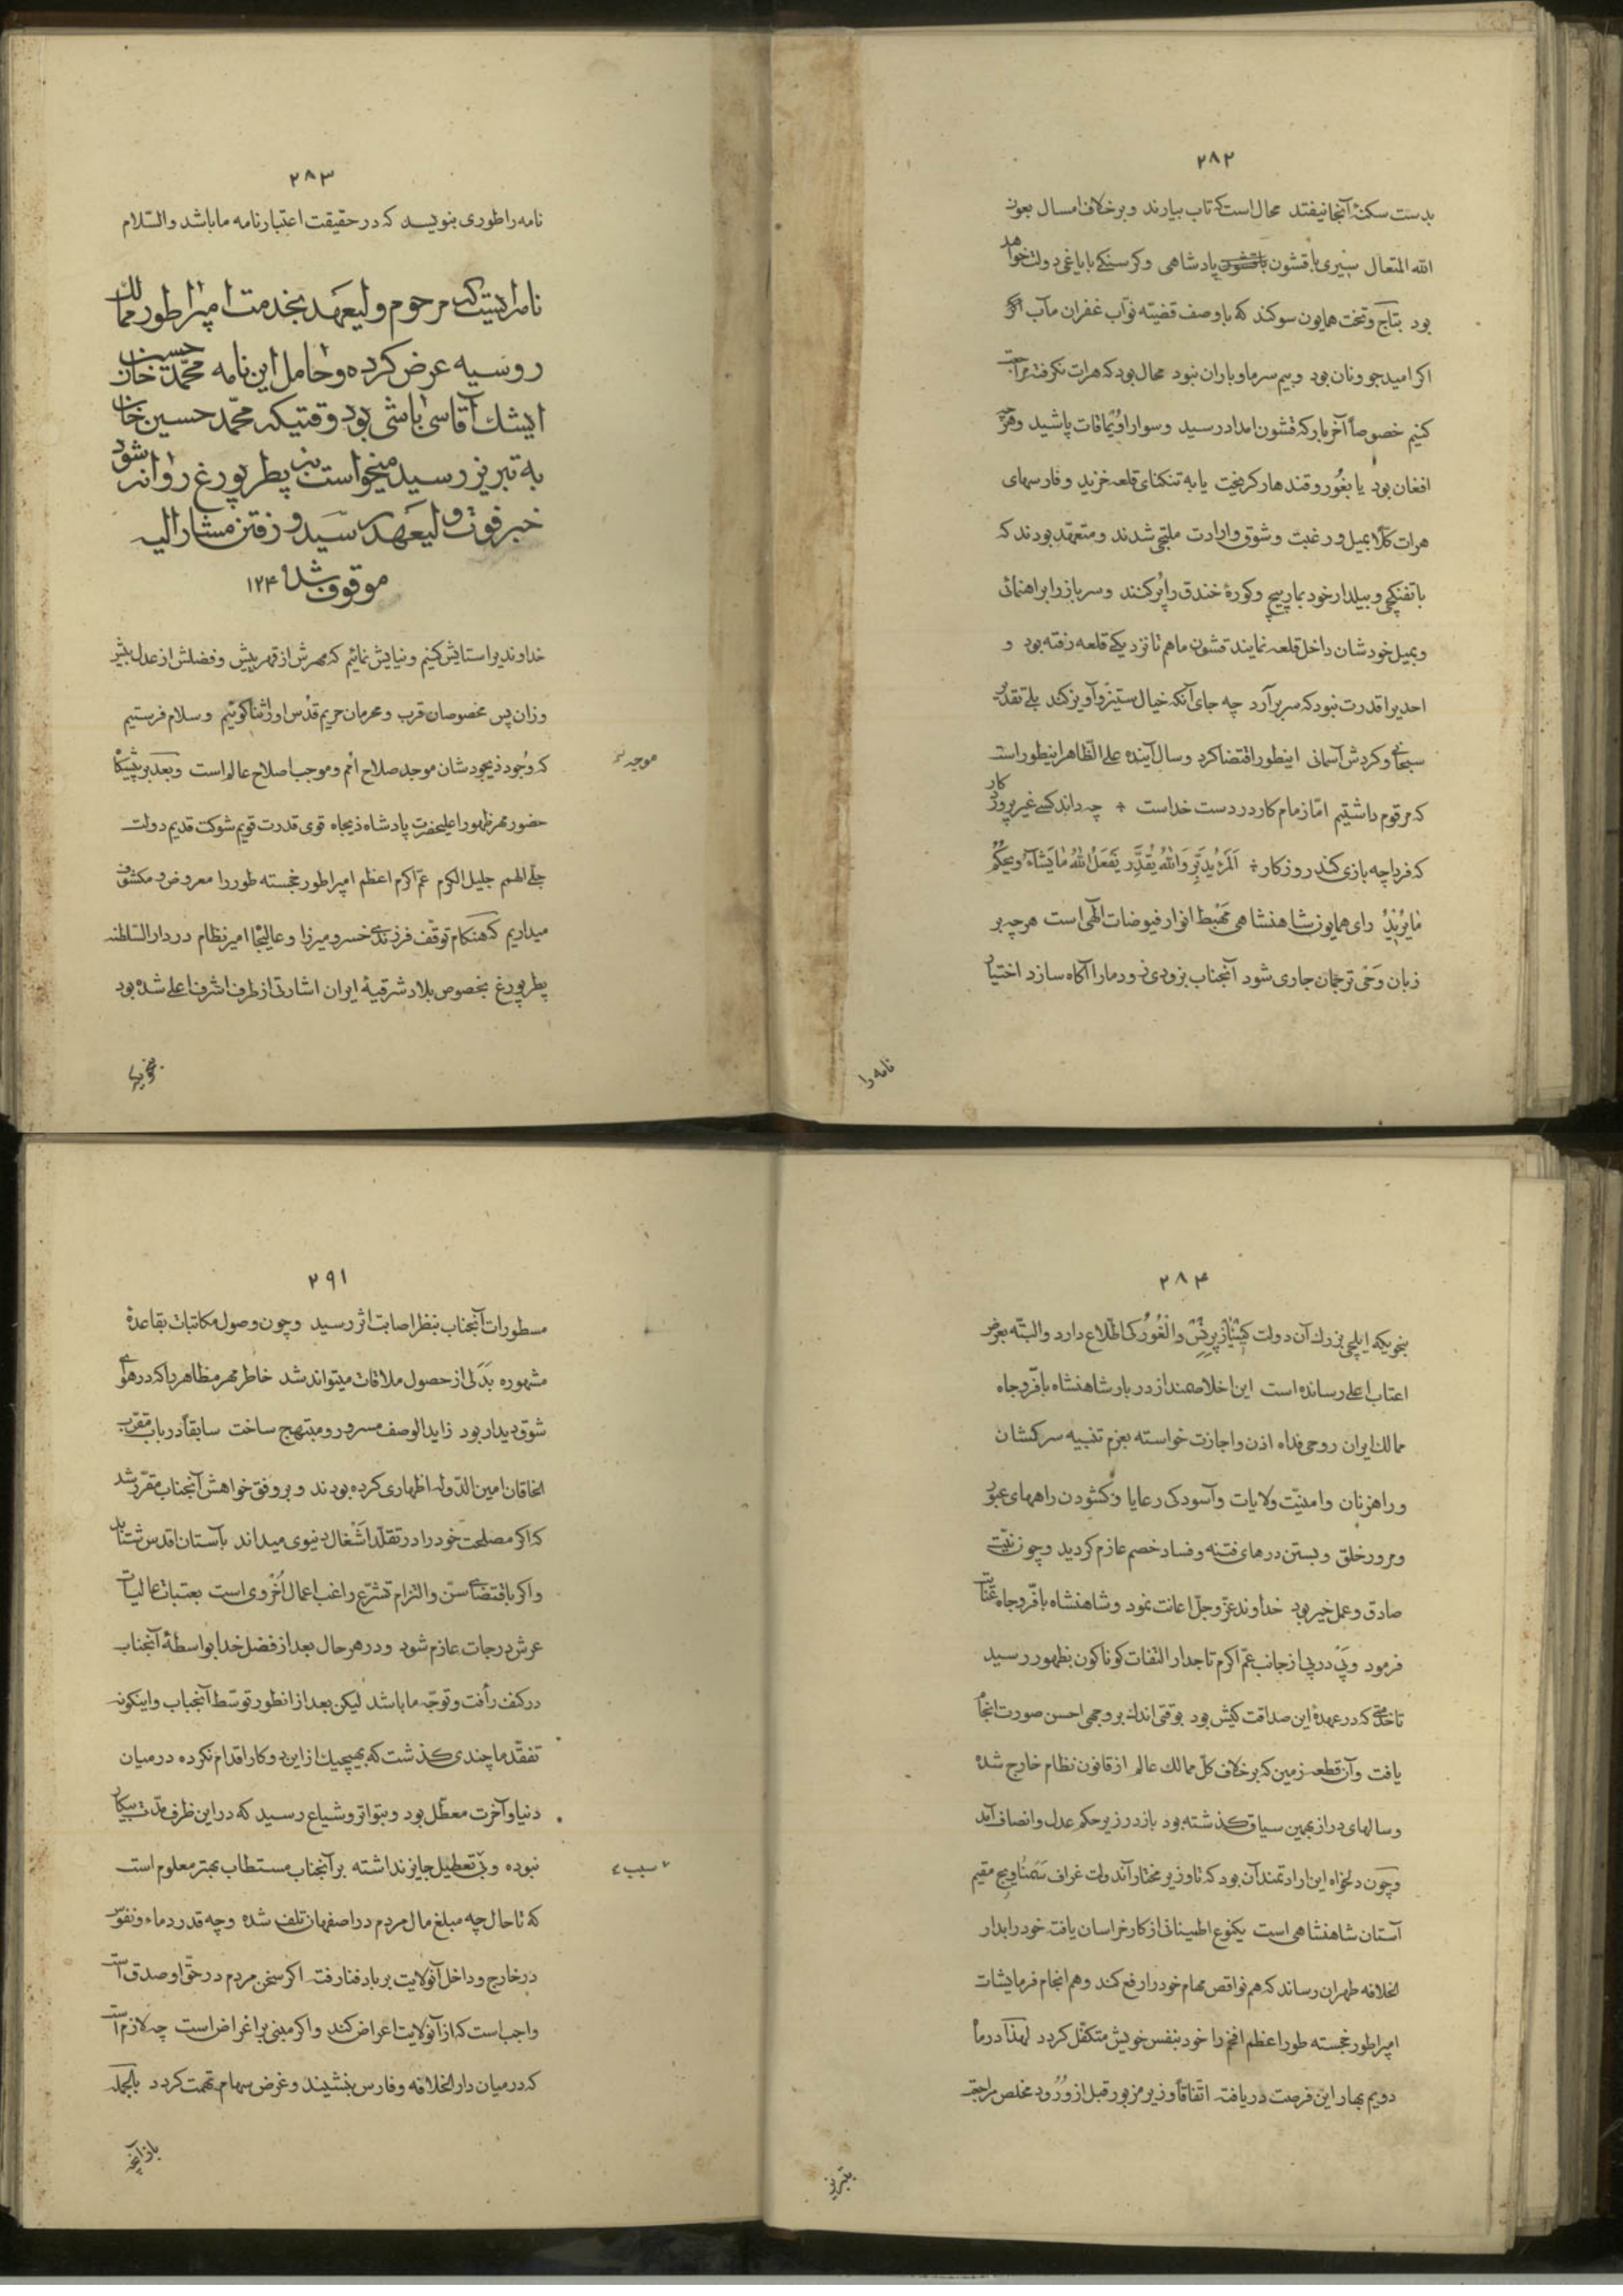 ۲۸۲
بدست سکنهٔ آنجا نیفتد محال است که تاب بیارند و برخلاف امسال بعون
الله المتعال سیری با قشون پادشاهی و کرسنکی با یاغی دولت خواهد
بود بتاج و تخت همایون سوکند که با وصف قضیّه نوّاب غفران مآب
اکر امید جو و نان بود و بیم سرما و باران نبود محال بود که هرات نکرفته مراجعت
کنیم خصوصاً آخر بار که قشون امداد رسید و سوار اویماقات پاشید و هرچه
افغان بود یا بغور و قندهار کریخت یا به تنکنای قلعه خزید و فارسهای
هرات کلّا بمیل و رغبت و شوق و ارادت ملتجی شدند و متعهّد بودند که
با تفنکچی و بیلدار خود بمارپیچ و کورهٔ خندق را پر کنند و سرباز را براهنمائی
و بمیل خودشان داخل قلعه نمایند قشون ما هم تا نزدیکی قلعه رفته بود و
احدیرا قدرت نبود که سر برآرد چه جای آنکه خیال ستیز و آویز کند بلی تقدیر
سبحانی و کردش آسمانی اینطور اقتضا کرد و سال آینده علی الظّاهر اینطور است
که مرقوم داشتیم امّا زمام کار در دست خداست چه داند کسی غیر پروردکار
که فردا چه بازی کند روزکار اَلمَرْءُ یُدَبِّر وَاللهُ یُقَدِّر یَفعَلُ اللهُ مایَشاءُ ویَحکُمُ
مایُریدُ رای همایون شاهنشاهی مَهْبِط انوار فیوضات الهی است هرچه بر
زبان وَحْی ترجمان جاری شود آنجناب بزودی زود ما را آکاه سازد اختیار
نامه را
۲۸۳
نامه را طوری بنویسد که در حقیقت اعتبارنامه ما باشد والسّلام
نامه ایست که مرحوم ولیعهد بخدمت امپراطور ممالک
روسیه عرض کرده و حامل این نامه محمّد حسین خان
ایشک آقاسی باشی بود وقتیکه محمّد حسین خان
به تبریز رسید میخواست به پطربورغ روانه شود
خبر فوت ولیعهد رسید و رفتن مشارالیه
موقوف شد ۱۲۴
خداوندیرا ستایش کنیم و نیایش نمائیم که مهرش از قهر بیش و فضلش از عدل بیشتر
وزان پس مخصوصان قرب و محرمان حریم قدس او را ثنا کوئیم و سلام فرستیم
که وجود ذیجودشان موجد صلاح امم و موجب اصلاح عالم است و بعد بر پیشکاه
موجد
حضور مهر ظهور اعلیحضرت پادشاه ذیجاه قوی قدرت قویم شوکت قدیم دولت
جلی الهمم جلیل الکرم عمّ اکرم اعظم امپراطور خجسته طور را معروض و مکشوف
میداریم که هنکام توقّف فرزندی خسرو میرزا و عالیجاه امیر نظام در دارالسّلطنه
پطربورغ بخصوص بلاد شرقیهٔ ایران اشارتی از طرف اشرف اعلی شده بود
بنحویکه
۲۸۴
بنحویکه ایلچی بزرک آن دولت کیناز دالغورکی اطّلاع دارد و البتّه بعرض
اعتاب اعلی رسانده است این اخلاصمند از دربار شاهنشاه با فرّ و جاه
ممالک ایران روحی فداه اذن و اجازت خواسته بعزم تنبیه سرکشان
و راهزنان و امنیّت ولایات و آسودکی رعایا و کشودن راههای عبور
و مرور خلق و بستن درهای فتنه و فساد خصم عازم کردید و چون نیّت
صادق و عمل خیر بود خداوند عزّ و جلّ اعانت نمود و شاهنشاه با فرّ و جاه عنایت
فرمود و پی در پی از جانب عمّ اکرم تاجدار التفات کوناکون بظهور رسید
تا خدمتی که در عهدهٔ این صداقت کیش بود بوقتی اندک بر وجهی احسن صورت انجام
یافت و آن قطعه زمین که برخلاف کلّ ممالک عالم از قانون نظام خارج شده
و سالهای دراز بهمین سیاق کذشته بود باز در زیر حکم عدل و انصاف آمد
و چون دلخواه این ارادتمند آن بود که تا وزیر مختار آندولت غراف سیمناویچ مقیم
آستان شاهنشاهی است یکنوع اطمینانی از کار خراسان یافته خود را بدار
الخلافه طهران رساند که هم نواقص مهام خود را رفع کند و هم انجام فرمایشات
امپراطور خجسته طور اعظم افخم را خود بنفس خویش متکفّل کردد لهذا در ماه
دویم بهار این فرصت دریافته اتّفاقاً وزیر مزبور قبل از ورود مخلص مراجعت
۲۹۱
مسطورات آنجناب بنظر اصابت اثر رسید و چون وصول مکاتبات بقاعدهٔ
مشهوره بَدَلی از حصول ملاقات میتواند شد خاطر مهر مظاهر را که در هوای
شوق دیدار بود زاید الوصف مسرور و مبتهج ساخت سابقاً در باب مقرّب
الخاقان امین الدّوله اظهاری کرده بودند و بر وفق خواهش آنجناب مقرّر شد
که اکر مصلحت خود را در تقلّد اَشْغال دنیوی میداند بآستان اقدس شتابد
و اکر باقتضای سنّ و التزام تشرّع راغب اعمال اُخْروی است بعتبات عالیات
عرش درجات عازم شود و در هر حال بعد از فضل خدا بواسطهٔ آنجناب
در کنف رأفت و توجّه ما باشد لیکن بعد از انطور توسّط آنجناب و اینکونه
تفقّد ما چندی کذشت که بهیچیک از این دو کار اقدام نکرده در میان
دنیا و آخرت معطّل بود و بتواتر و شیاع رسید که در این ظرف مدّت بیکار
نبوده و بی تعطیل جایز نداشته بر آنجناب مستطاب بهتر معلوم است
سبب
که تا حال چه مبلغ مال مردم در اصفهان تلف شده و چه قدر دماء و نفوس
در خارج و داخل آنولایت بر باد فنا رفته اکر سخن مردم در حقّ او صدق است
واجب است که از آنولایت اعراض کند و اکر مبنی بر اغراض است چه لازم است
که در میان دار الخلافه و فارس بنشیند و غرض سهام تهمت کردد بالجمله
باز آنچه